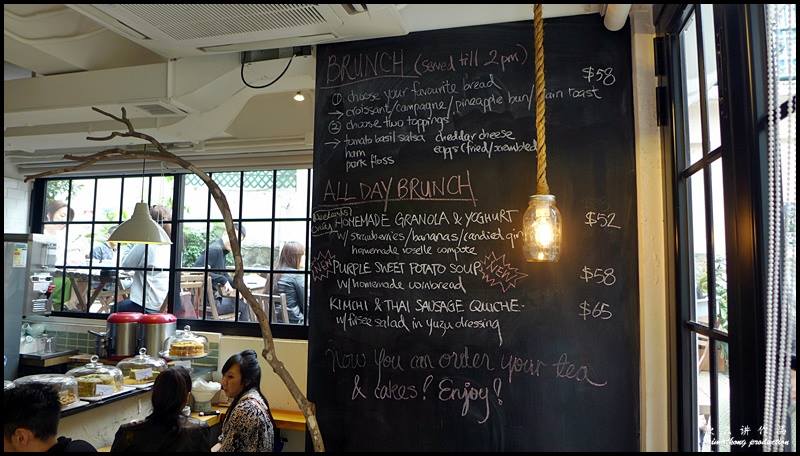 BRUNCH (served till 2pm)
① choose your favourite bread $58
→ croissant/campagne/pineapple bun/ toast
② choose two toppings
→ tomato basil salsa cheddar cheese
ham eggs (fried/scrambled
pork floss
ALL DAY BRUNCH
(Weekends Only) HOMEMADE GRANOLA & YOGHURT $52
w/ strawberries/bananas/candied
homemade roselle compote
NEW PURPLE SWEET POTATO SOUP NEW $58
w/ homemade cornbread
KIMCHI & THAI SAUSAGE QUICHE $65
w/ frisee salad in yuzu dressing
Now you can order your tea
& cakes! Enjoy!
production